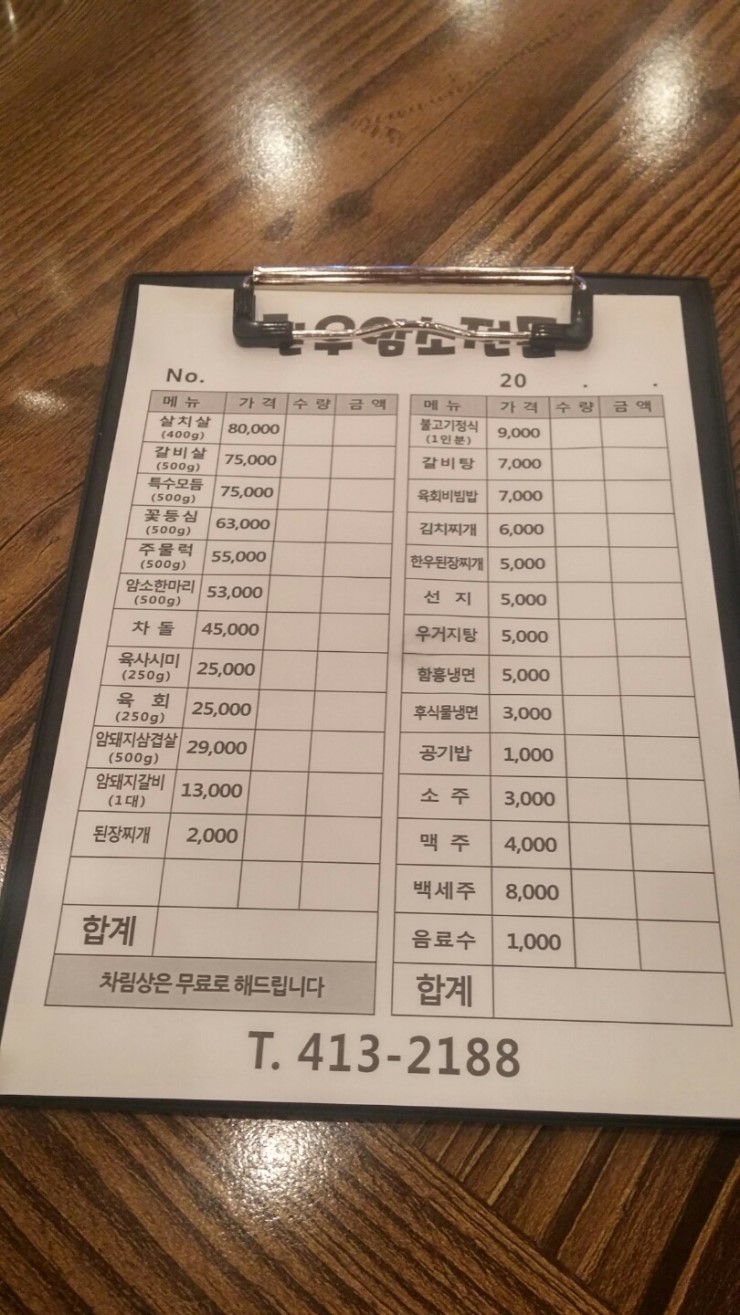 한우암소전문
No.
20 . .
메뉴 가격 수량 금액
살치살 80,000
(400g)
갈비살 75,000
(500g)
특수모듬 75,000
(500g)
꽃등심 63,000
(500g)
주물럭 55,000
(500g)
암소한마리 53,000
(500g)
차돌 45,000
육사시미 25,000
(250g)
육회 25,000
(250g)
암돼지삼겹살 29,000
(500g)
암돼지갈비 13,000
(1대)
된장찌개 2,000
합계
차림상은 무료로 해드립니다
메뉴 가격 수량 금액
불고기정식 9,000
(1인분)
갈비탕 7,000
육회비빔밥 7,000
김치찌개 6,000
한우된장찌개 5,000
선지 5,000
우거지탕 5,000
함흥냉면 5,000
후식물냉면 3,000
공기밥 1,000
소주 3,000
맥주 4,000
백세주 8,000
음료수 1,000
합계
T. 413-2188